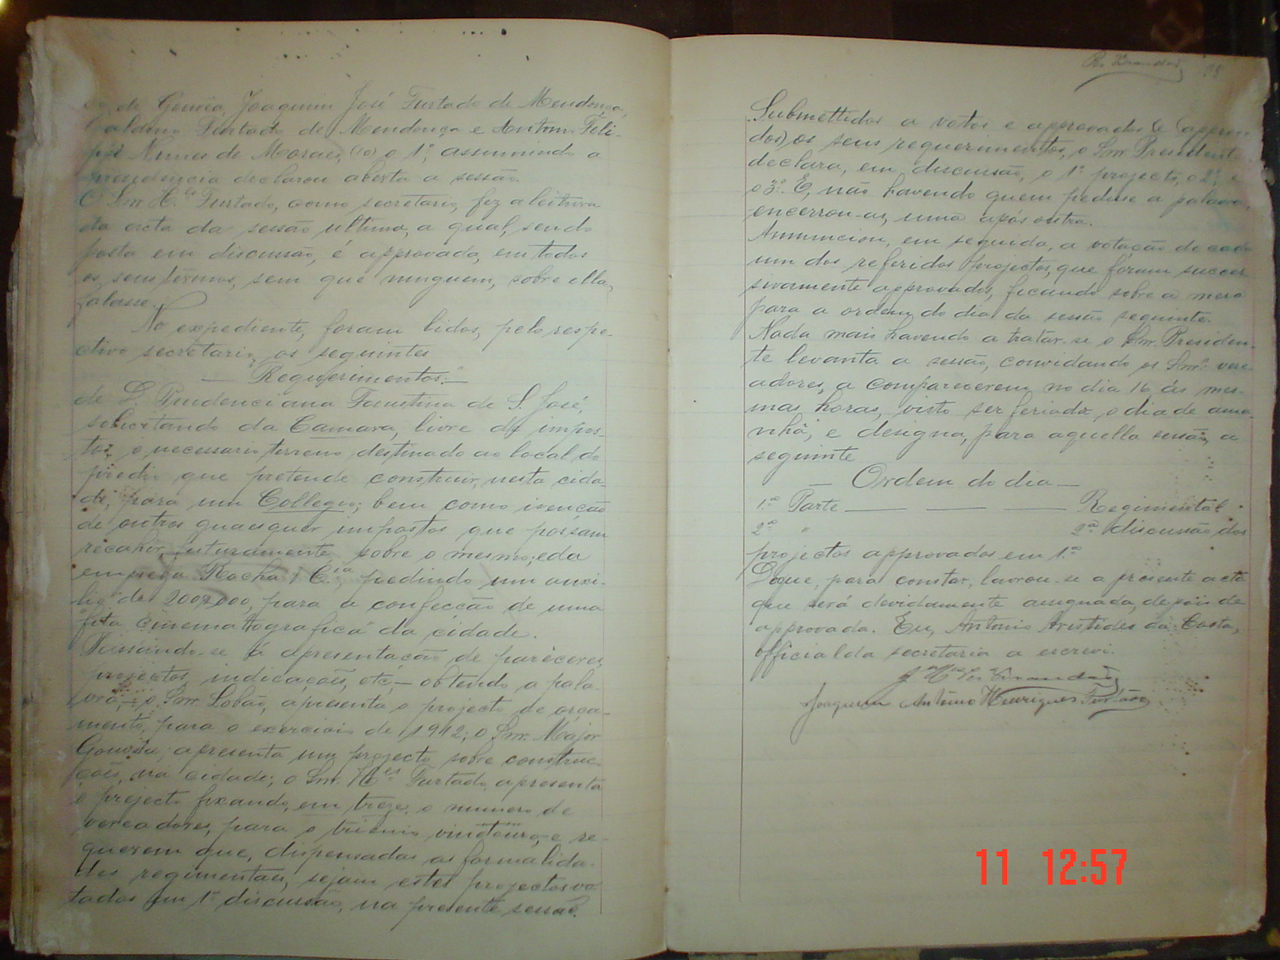 de Gouvêa, Joaquim José Furtado de Mendonça,
Galdino Furtado de Mendonça e Antonio Feli-
Nunes de Moraes, (10) o 1º, assumindo a
presidencia declarou aberta a sessão.
O Snr. Furtado, como secretario, fez a leitura
da acta da sessão ultima, a qual, sendo
posta em discussão, é approvada, em todos
os seus termos, sem que ninguem, sobre ella,
falasse.
No expediente, foram lidos, pelo respe-
ctivo secretario, os seguintes
— Requerimentos: —
de D. Prudenciana Faustina de S. José,
solicitando da Camara, livre de impos-
tos, o necessario terreno, destinado ao local do
predio que pretende construir, nesta cida-
de, para um Collegio; bem como isenção
de outros quaesquer impostos que possam
recahir, futuramente, sobre o mesmo; e da
empreza Rocha & Cia, pedindo um auxi-
lio de 200$000, para a confecção de uma
fita cinematografica da cidade.
Passando-se á apresentação de pareceres,
projectos, indicações, etc — obtendo a pala-
vra, o Snr. Lobão, apresenta o projecto de orça-
mento, para o exercicio de 1912; o Snr. Major
Gouvêa, apresenta um projecto sobre construc-
ções, na cidade; o Snr. Furtado, apresenta
o projecto fixando, em treze, o numero de
vereadores, para o triennio vindouro, e re-
querem que, dispensadas as formalida-
des regimentaes, sejam estes projectos vo-
tados em 1ª discussão, na presente sessão.
Submettidos a votos e approvados (e (appro-
dos) os seus requerimentos, o Snr. Presidente
declara, em discussão, o 1º projecto, o 2º e
o 3º. E, não havendo quem pedisse a palavra,
encerrou-as, uma após outra.
Annunciou, em seguida, a votação de cada
um dos referidos projectos, que foram succes-
sivamente approvados, ficando sobre a mesa
para a ordem do dia da sessão seguinte.
Nada mais havendo a tratar-se o Snr. Presiden-
te levanta a sessão, convidando os Snrs. vere-
adores, a comparecerem no dia 16, ás mes-
mas horas, visto ser feriado o dia de ama-
nhã, e designa, para aquella sessão, a
seguinte
— Ordem do dia —
1ª Parte — — — Regimental.
2ª " 2ª discussão dos
projectos approvados em 1ª
Doque, para constar, lavrou-se a presente acta
que será devidamente assignada, depois de
approvada. Eu, Antonio Aristides da Costa,
official da secretaria a escrevi.
Joaquim Antonio Henriques Furtado
11 12:57